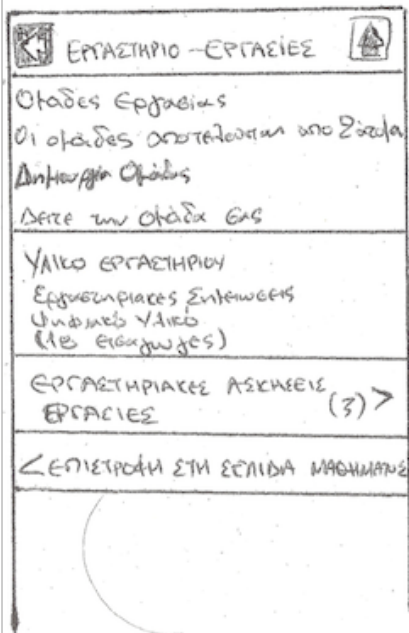 ΕΡΓΑΣΤΗΡΙΟ - ΕΡΓΑΣΙΕΣ
Ομάδες Εργασίας
Οι ομάδες αποτελούνται απο 2 άτομα
Δημιουργία Ομάδας
Δείτε την ομάδα σας
ΥΛΙΚΟ ΕΡΓΑΣΤΗΡΙΟΥ
Εργαστηριακές Σημειώσεις
Ψηφιακό Υλικό
(18 εισαγωγές)
ΕΡΓΑΣΤΗΡΙΑΚΕΣ ΑΣΚΗΣΕΙΣ
ΕΡΓΑΣΙΕΣ (3) >
< ΕΠΙΣΤΡΟΦΗ ΣΤΗ ΣΕΛΙΔΑ ΜΑΘΗΜΑΤΟΣ